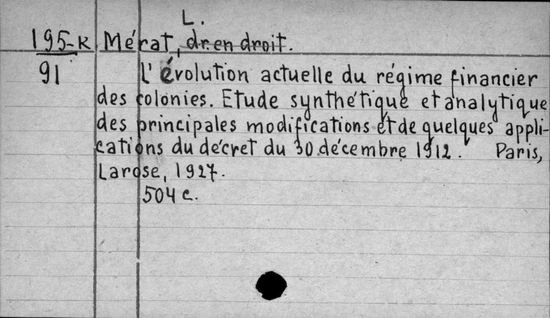 L.
195-K Mérat, dr. en droit.
91 L'évolution actuelle du régime financier
des colonies. Etude synthétique et analytique
des principales modifications et de quelques appli-
cations du décret du 30 décembre 1912. Paris,
Larose, 1927.
504 c.